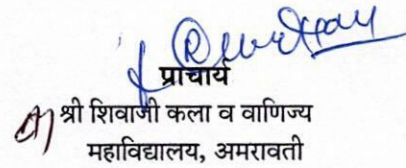 प्राचार्य
श्री शिवाजी कला व वाणिज्य
महाविद्यालय, अमरावती